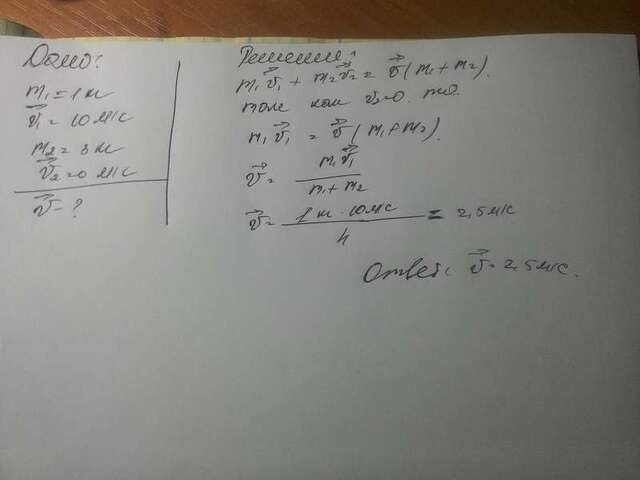 Дано:
m₁ = 1 кг
v⃗₁ = 10 м/с
m₂ = 3 кг
v⃗₂ = 0 м/с
v⃗ = ?
Решение:
m₁v⃗₁ + m₂v⃗₂ = v⃗(m₁ + m₂).
v₂=0.
m₁v⃗₁ = v⃗(m₁+m₂).
v⃗ = m₁v⃗₁ / m₁ + m₂
v⃗ = 1 кг · 10 м/с / 4 = 2,5 м/с
Ответ: v⃗ = 2,5 м/с.